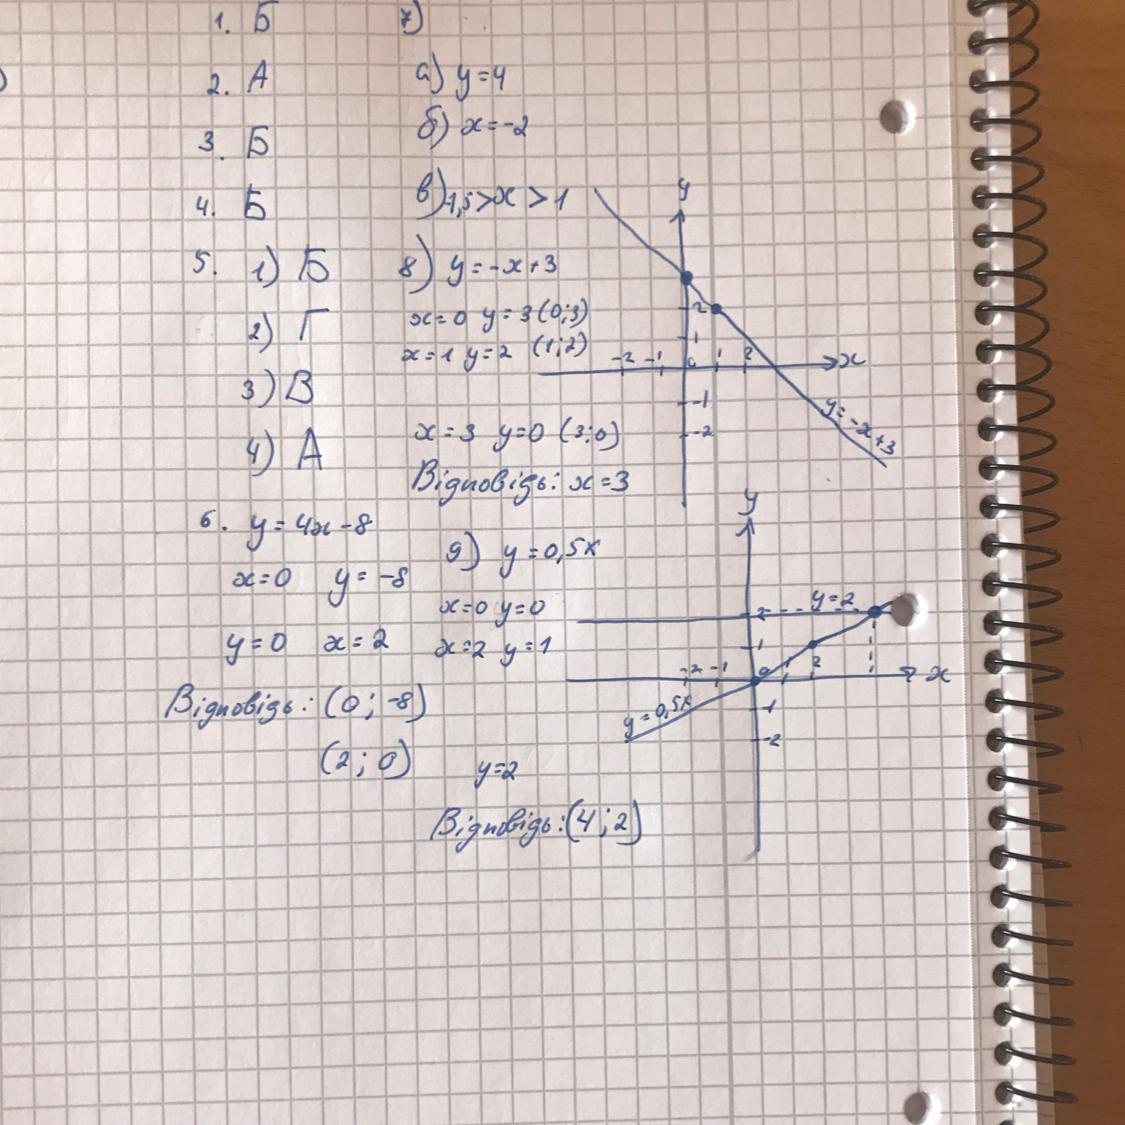 1. Б
2. А
3. Б
4. Б
5. 1) Б
2) Г
3) В
4) А
6. y = 4x - 8
x = 0 y = -8
y = 0 x = 2
Відповідь: (0; -8)
(2; 0)
7)
а) y = 4
б) x = -2
в) -1,5 > x > 1
8) y = -x + 3
x = 0 y = 3 (0;3)
x = 1 y = 2 (1;2)
x = 3 y = 0 (3;0)
Відповідь: x = 3
y
2
1
-2 -1 0 1 2 x
-1
-2
y = -x + 3
9) y = 0,5x
x = 0 y = 0
x = 2 y = 1
y = 2
Відповідь: (4; 2)
y
2 y = 2
1
-2 -1 0 1 2 x
-1
-2
y = 0,5x